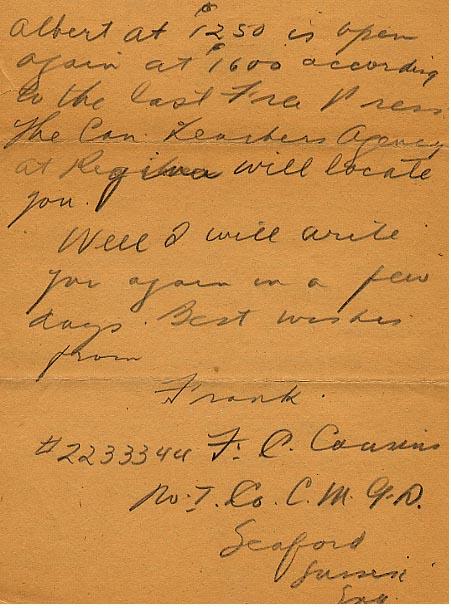 Albert at $1250 is open
again at $1600 according
to the last Free Press.
The Can. Teachers Agency
at Regina will locate
you.
Well I will write
you again in a few
days. Best wishes
from
Frank.
#2233344 F. C. Cousins
No. 7. Co. C. M. G. D.
Seaford
Sussex
Eng.